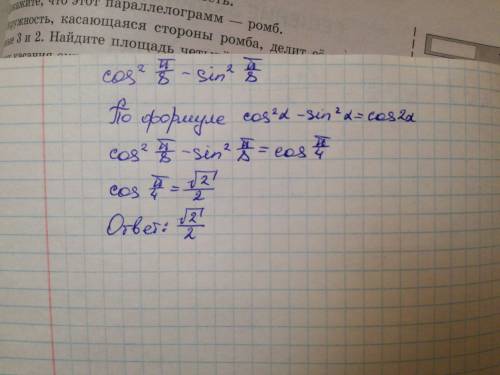 ажите, что этот параллелограмм — ромб.
кружность, касающаяся стороны ромба, делит её
ние 3 и 2. Найдите площадь четыр
cos² π/8 − sin² π/8
По формуле cos²α − sin²α = cos2α
cos² π/8 − sin² π/8 = cos π/4
cos π/4 = √2/2
Ответ: √2/2